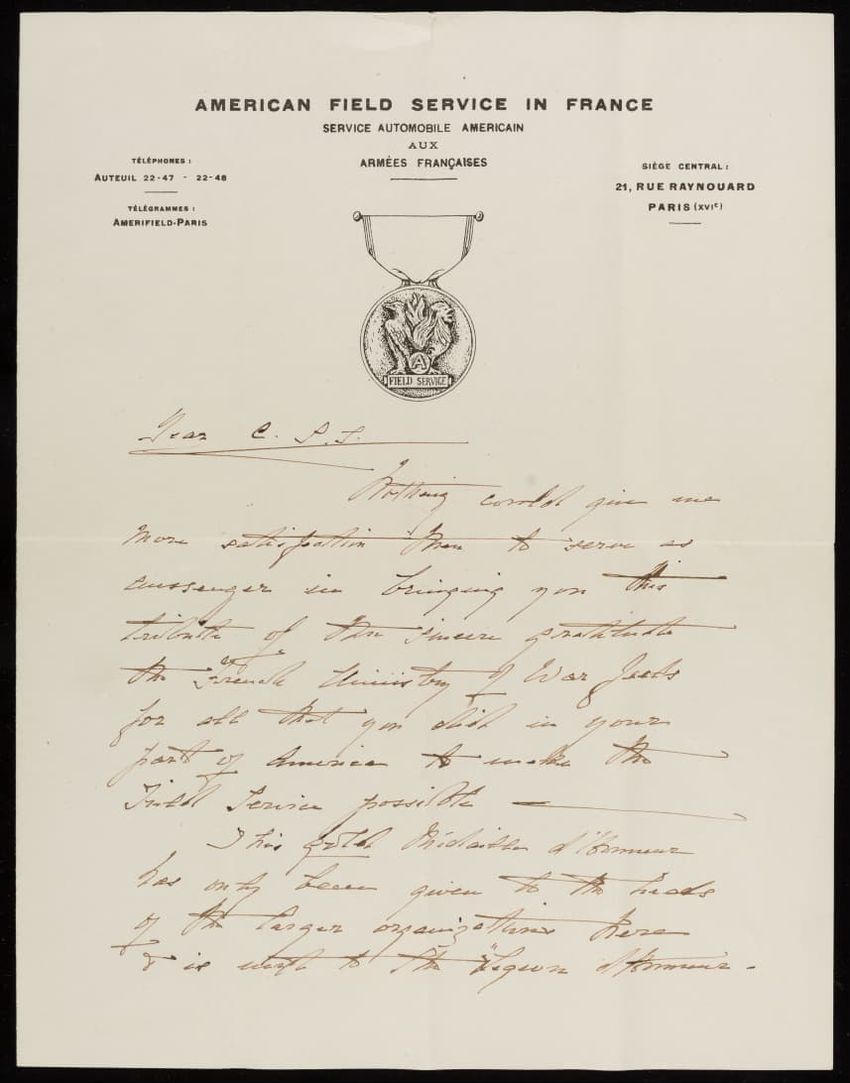 AMERICAN FIELD SERVICE IN FRANCE
SERVICE AUTOMOBILE AMERICAIN
AUX
ARMÉES FRANÇAISES
TÉLÉPHONES :
AUTEUIL 22-47 - 22-48
TÉLÉGRAMMES :
AMERIFIELD-PARIS
SIÈGE CENTRAL :
21, RUE RAYNOUARD
PARIS (XVIe)
A
FIELD SERVICE
Dear C. P. S.
Nothing could give me
more satisfaction than to serve as
messenger in bringing you this
tribute of the sincere gratitude
the French Ministry of War feels
for all that you did in your
part of America to make the
Field Service possible
This gold Médaille d'Honneur
has only been given to the heads
of the larger organizations here
& is next to the "Legion d'Honneur -